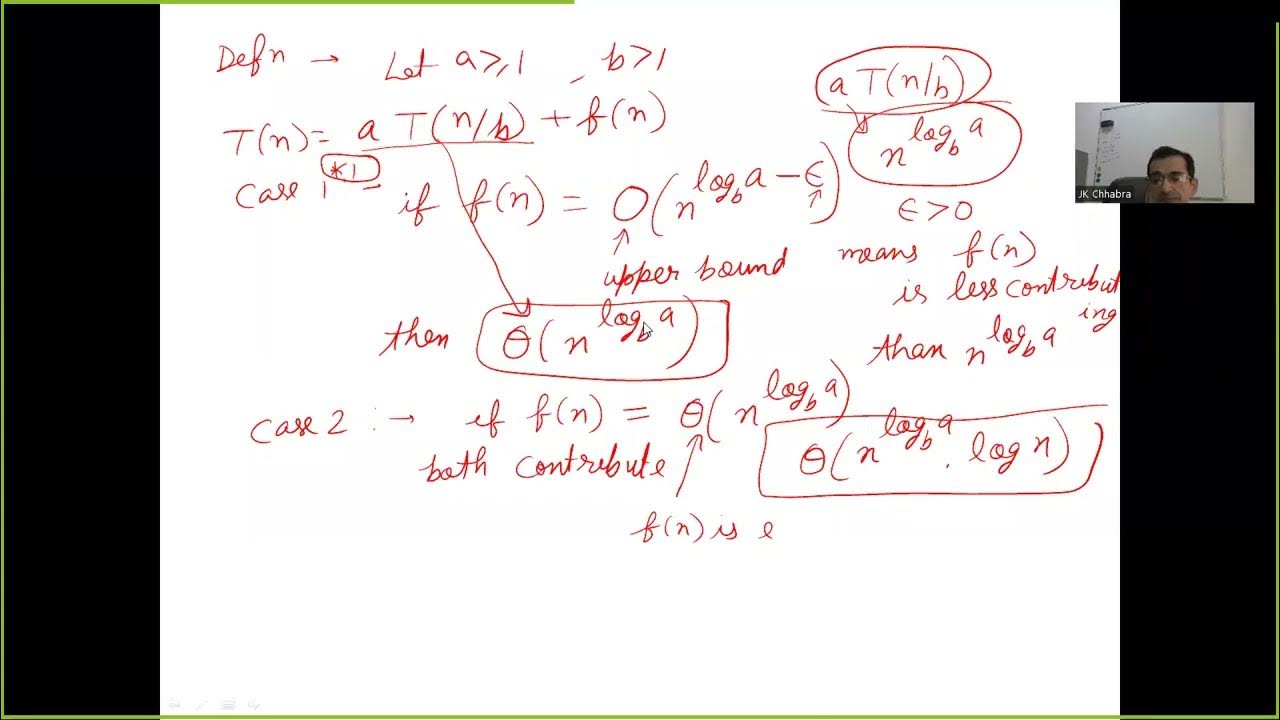 Defn → Let a ≥ 1 , b > 1
a T(n/b)
T(n) = a T(n/b) + f(n)
n^{log_b a}
*1
Case 1 - if f(n) = O(n^{log_b a - ε})
ε > 0
↑
upper bound means f(n)
is less contribut
ing
than n^{log_b a}
then Θ(n^{log_b a})
Case 2 :→ if f(n) = Θ(n^{log_b a})
Θ(n^{log_b a} . log n)
both contribute
f(n) is e
JK Chhabra